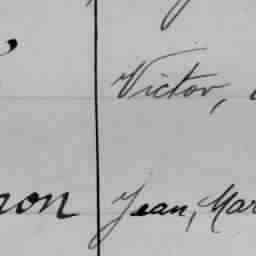 Victor,
Jean, Mar